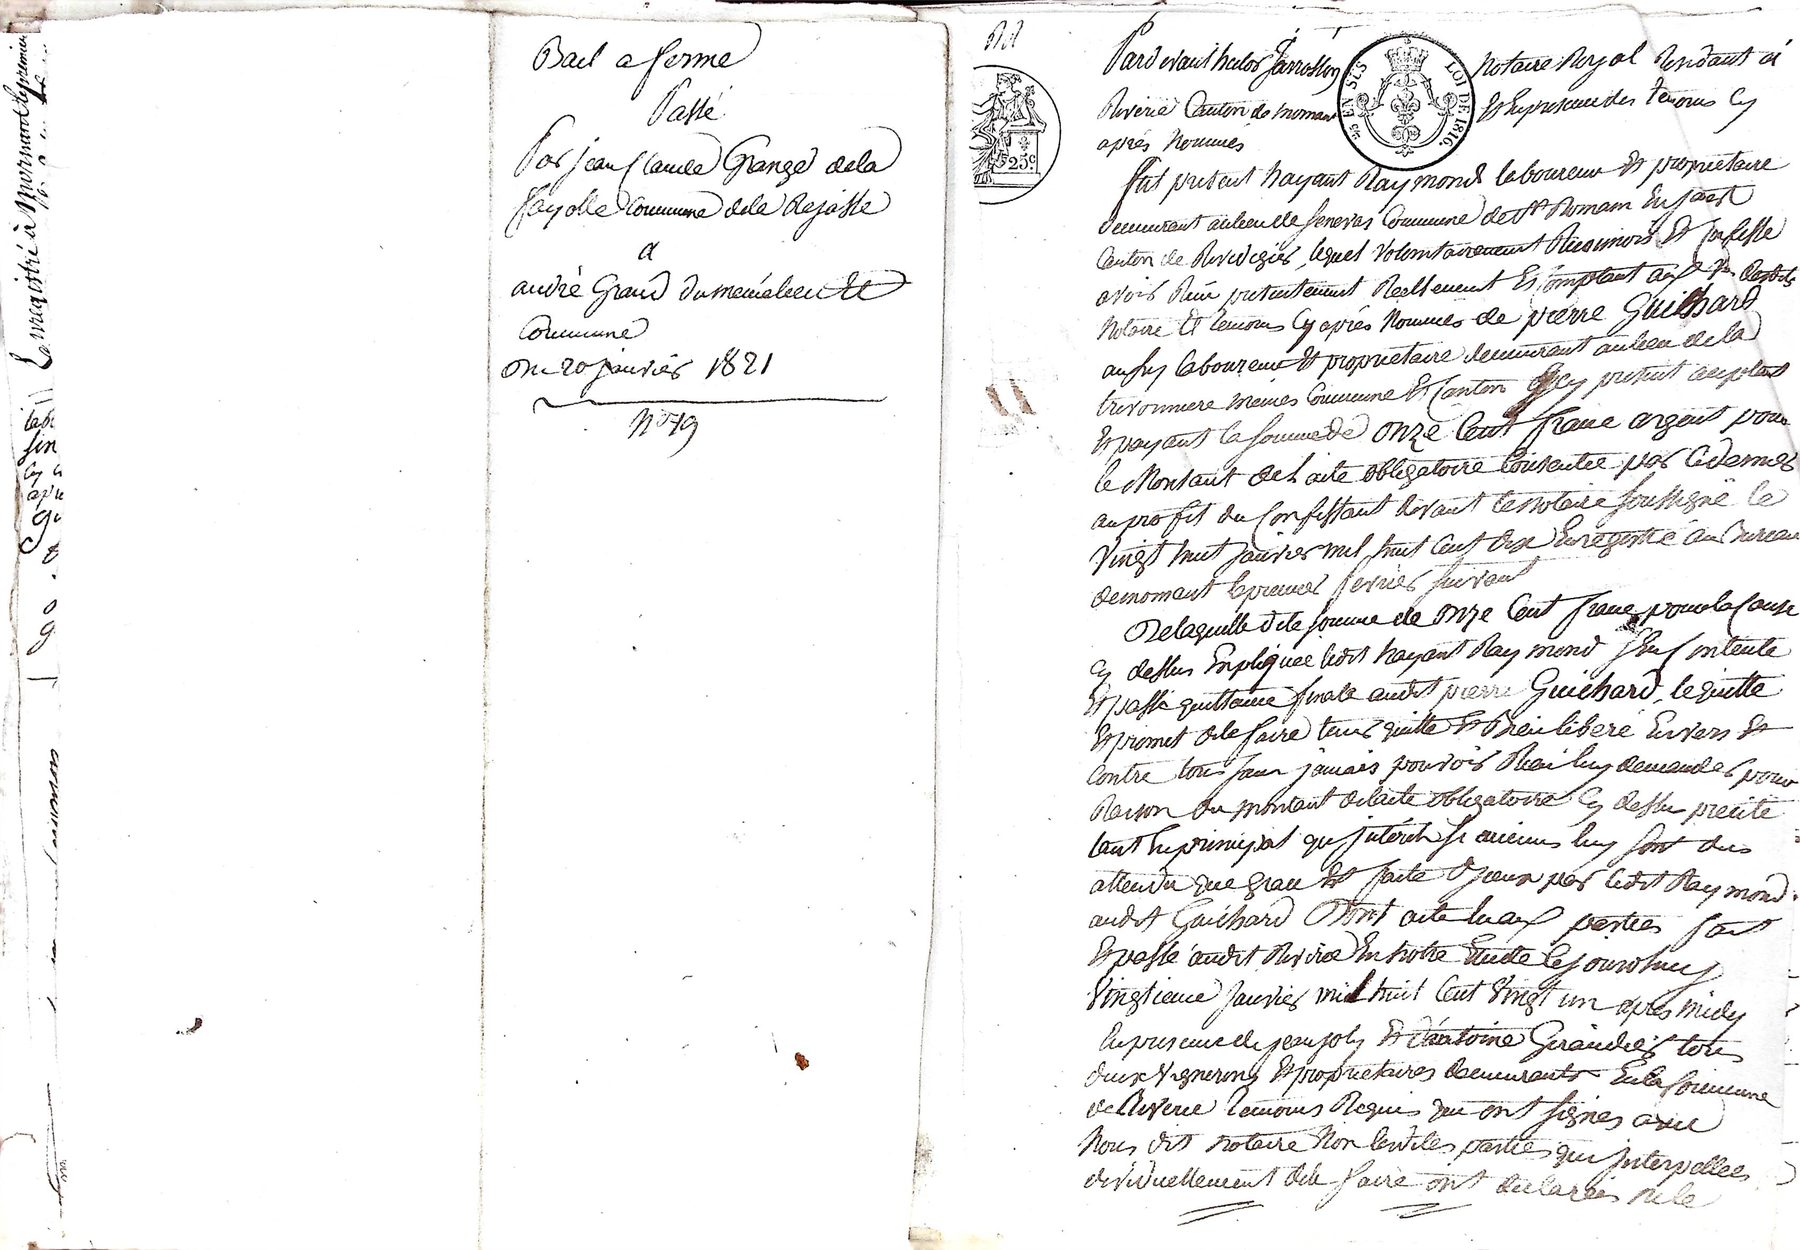 Bail a ferme
Passé
Par jean Claude Grange de la
fayolle Commune de la Rajasse
a
andré Grand du meme lieu et
Commune
Du 20 janvier 1821
N° 19
Enregistré à Mornant le premier
25 EN SUS
LOI DE 1816.
25c
Pardevant Notaire Royal Residant à
Riverie Canton de mornant Et En presence des temoins Cy
après Nommés
fut present hayant Raymond laboureur Et proprietaire
demeurant au lieu de Senevas Commune de St Romain En jarest
Canton de Rivedegier, lequel volontairement Reconnois Et Confesse
avoir Reçu presentement Reellement Et Comptant
Notaire Et temoins Cy après Nommés de pierre Guichard
laboureur Et proprietaire demeurant au lieu de la
memes Commune Et Canton Cy present acceptant
Et payant la somme de onze Cent franc argent pour
le Montant de L'acte obligatoire Consentie par Ce dernier
au profit du Confessant devant le Notaire soussigné le
vingt huit janvier mil huit Cent dix Enregistré au Bureau
de mornant le premier fevrier suivant
De laquelle dite somme de onze Cent franc pour la Cause
Cy dessus Expliquée ledit hayant Raymond s'En Contente
Et passe quittance finale audit pierre Guichard, le quitte
Et promet de le faire tenir quitte Et Bien liberé Envers Et
Contre tous sans jamais pouvoir Rien luy demander pour
Raison du montant de l'acte obligatoire Cy dessus precité
tant En principal qu'jnterets si aucuns luy sont dus
attendu que grace Est faite d'yceux par ledit Raymond
audit Guichard Dont acte Eux parties fait
Et passé audit Riverie En notre Etude le jourdhuy
vingtieme janvier mil huit Cent vingt un après midy
En presence de jean joly Et d'antoine Giraudier tous
deux vignerons Et proprietaires demeurants En la Commune
de Riverie temoins Requis qui ont signés avec
Nous dit notaire Non lesdites parties qui jnterpellées
dividuellement de le faire ont declarées ne le